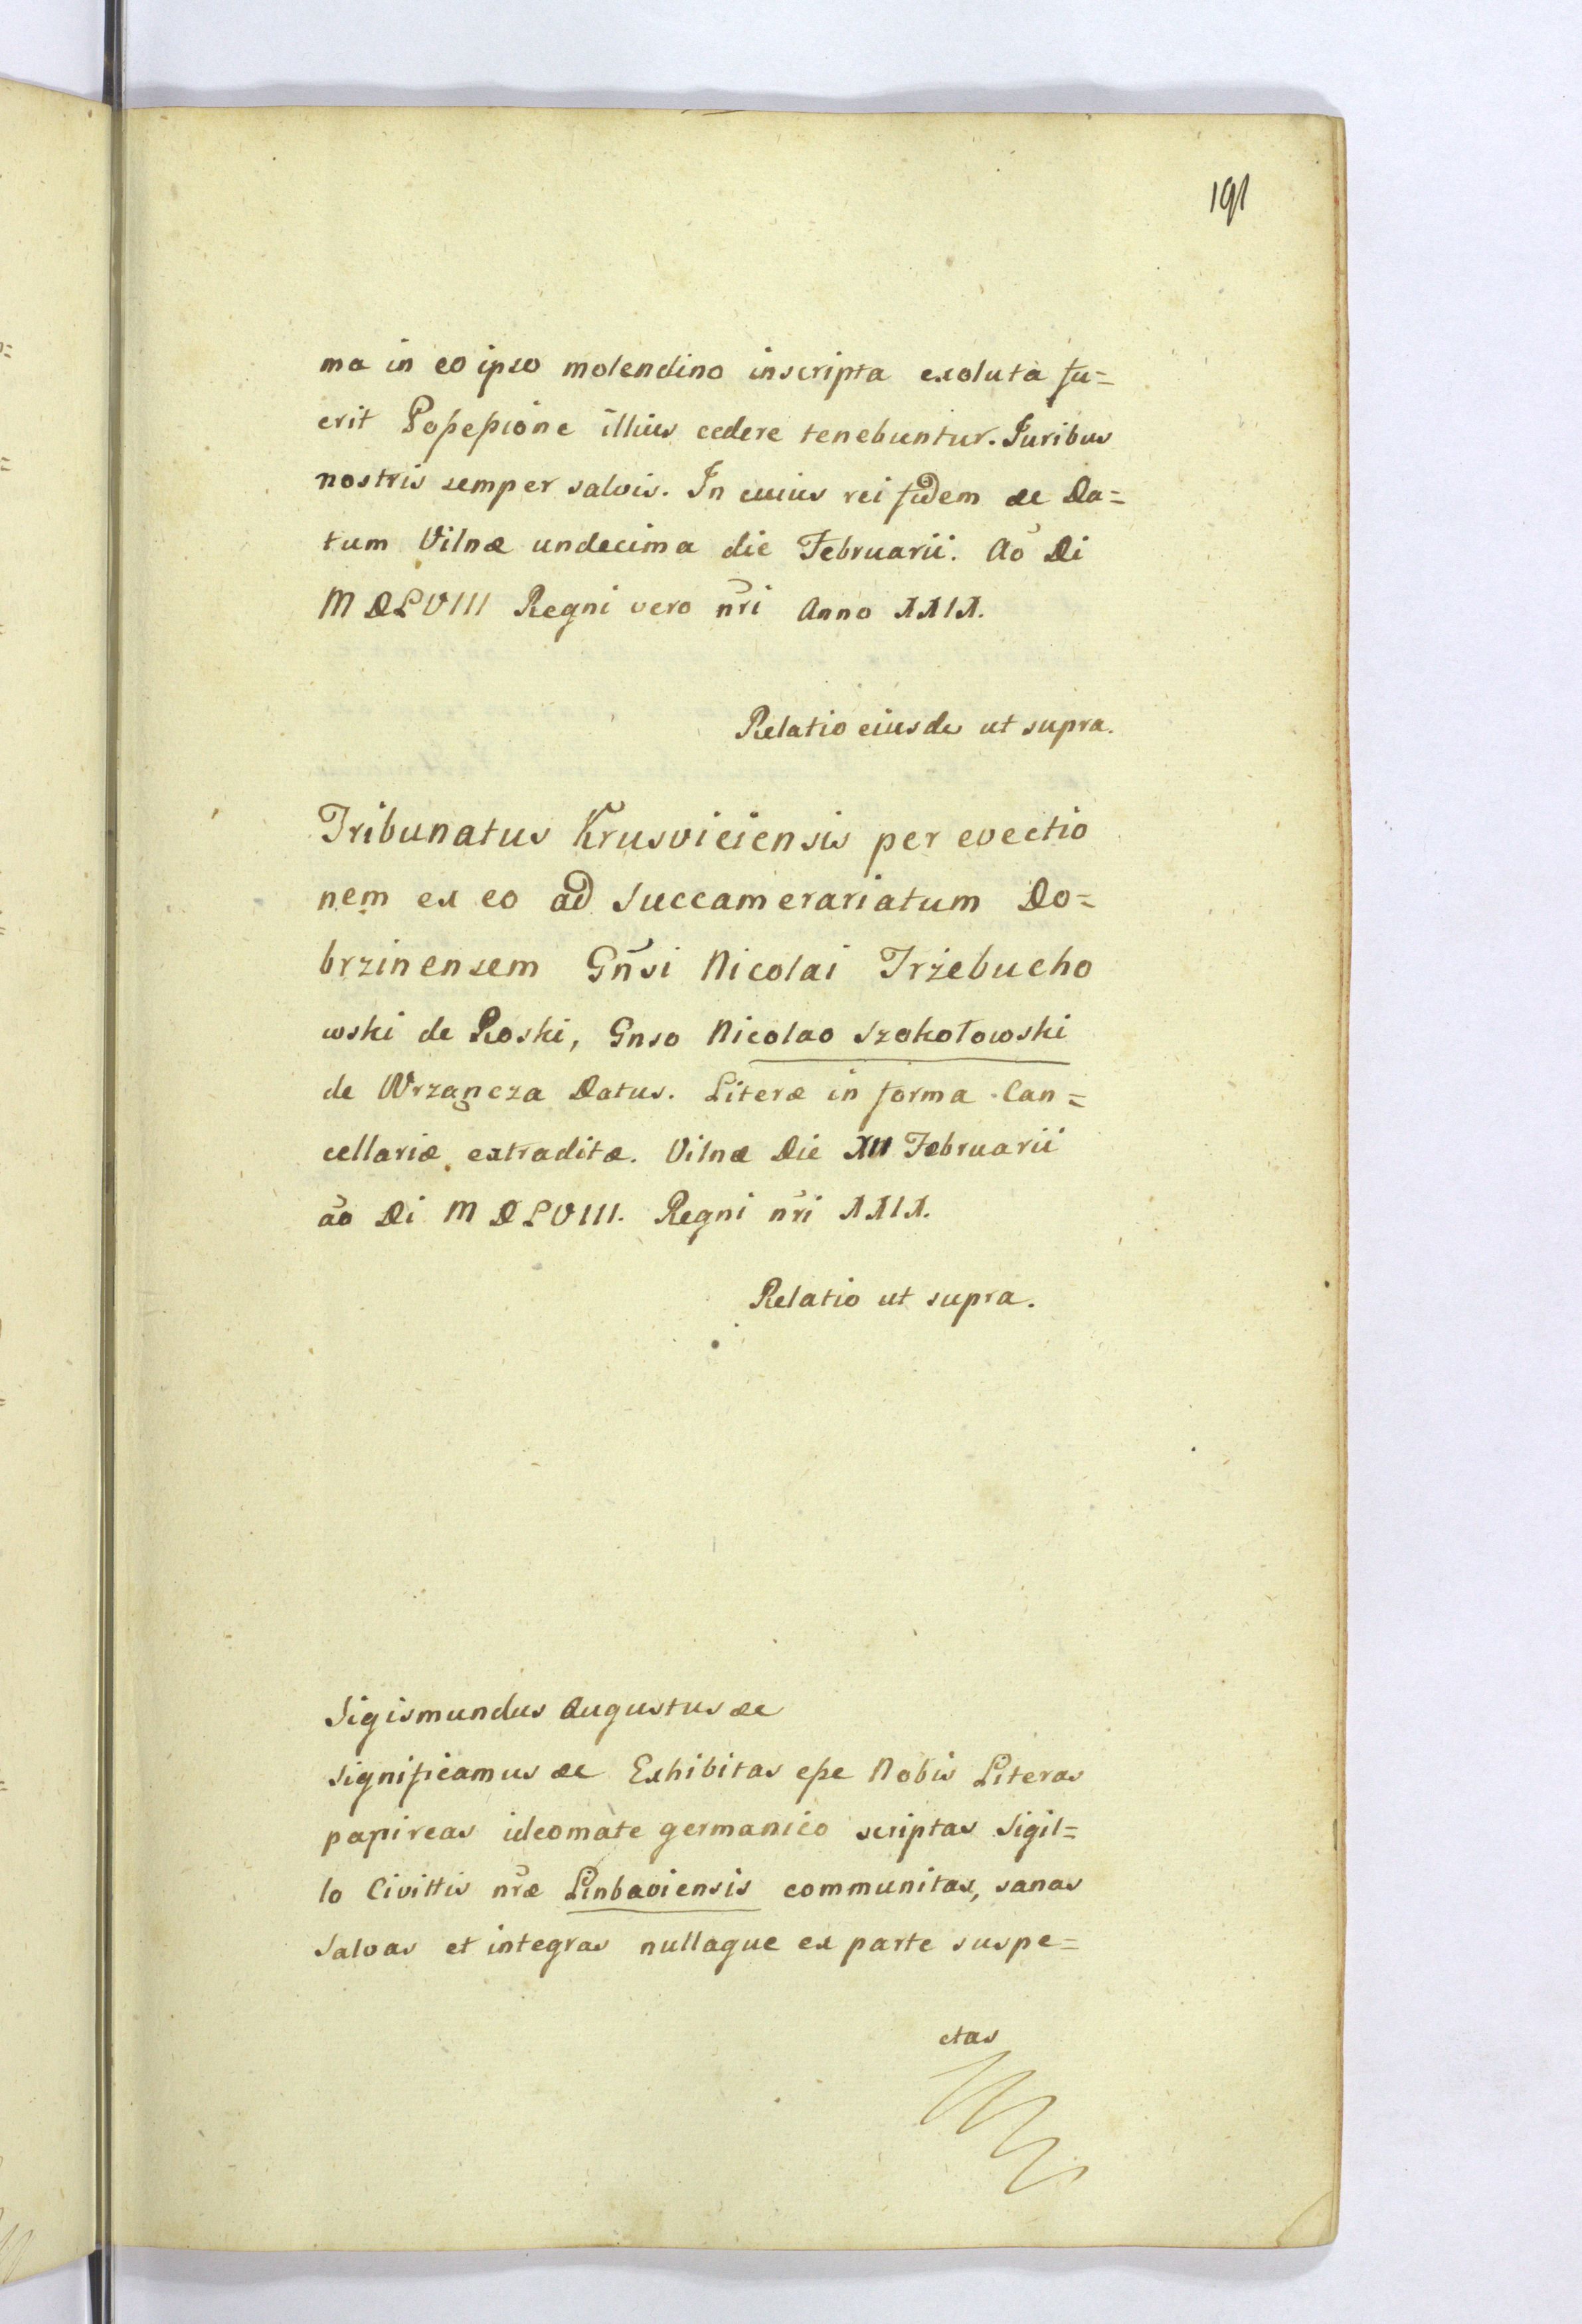 191
ma in eo ipso molendino inscripta exoluta fu=
erit Possessione illius cedere tenebuntur. Juribus
nostris semper salvis. In cuius rei fidem &c Da=
tum Vilnæ undecima die Februarii. Ao Di
MDLVIII Regni vero nri Anno XXIX.
Relatio eiusde ut supra.
Tribunatus Krusviciensis per evectio
nem ex eo ad Succamerariatum Do=
brzinensem Gnsi Nicolai Trżebucho
wski de Roski, Gnso Nicolao Szokołowski
de Wrzącza Datus. Literæ in forma Can=
cellariæ extraditæ. Vilnæ Die XII Februarii
ao Di MDLVIII. Regni nri XXIX.
Relatio ut supra.
Sigismundus Augustus &c
significamus &c Exhibitas esse Nobis Literas
papireas ideomate germanico scriptas Sigil=
lo Civittis nræ Linbaviensis communitas, sanas
salvas et integras nullaque ex parte suspe=
ctas